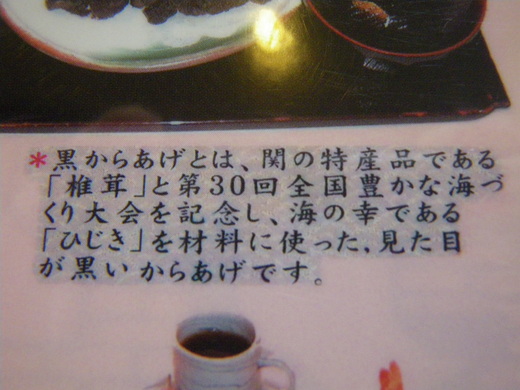 *黒からあげとは、関の特産品である
「椎茸」と第30回全国豊かな海づ
くり大会を記念し、海の幸である
「ひじき」を材料に使った、見た目
が黒いからあげです。